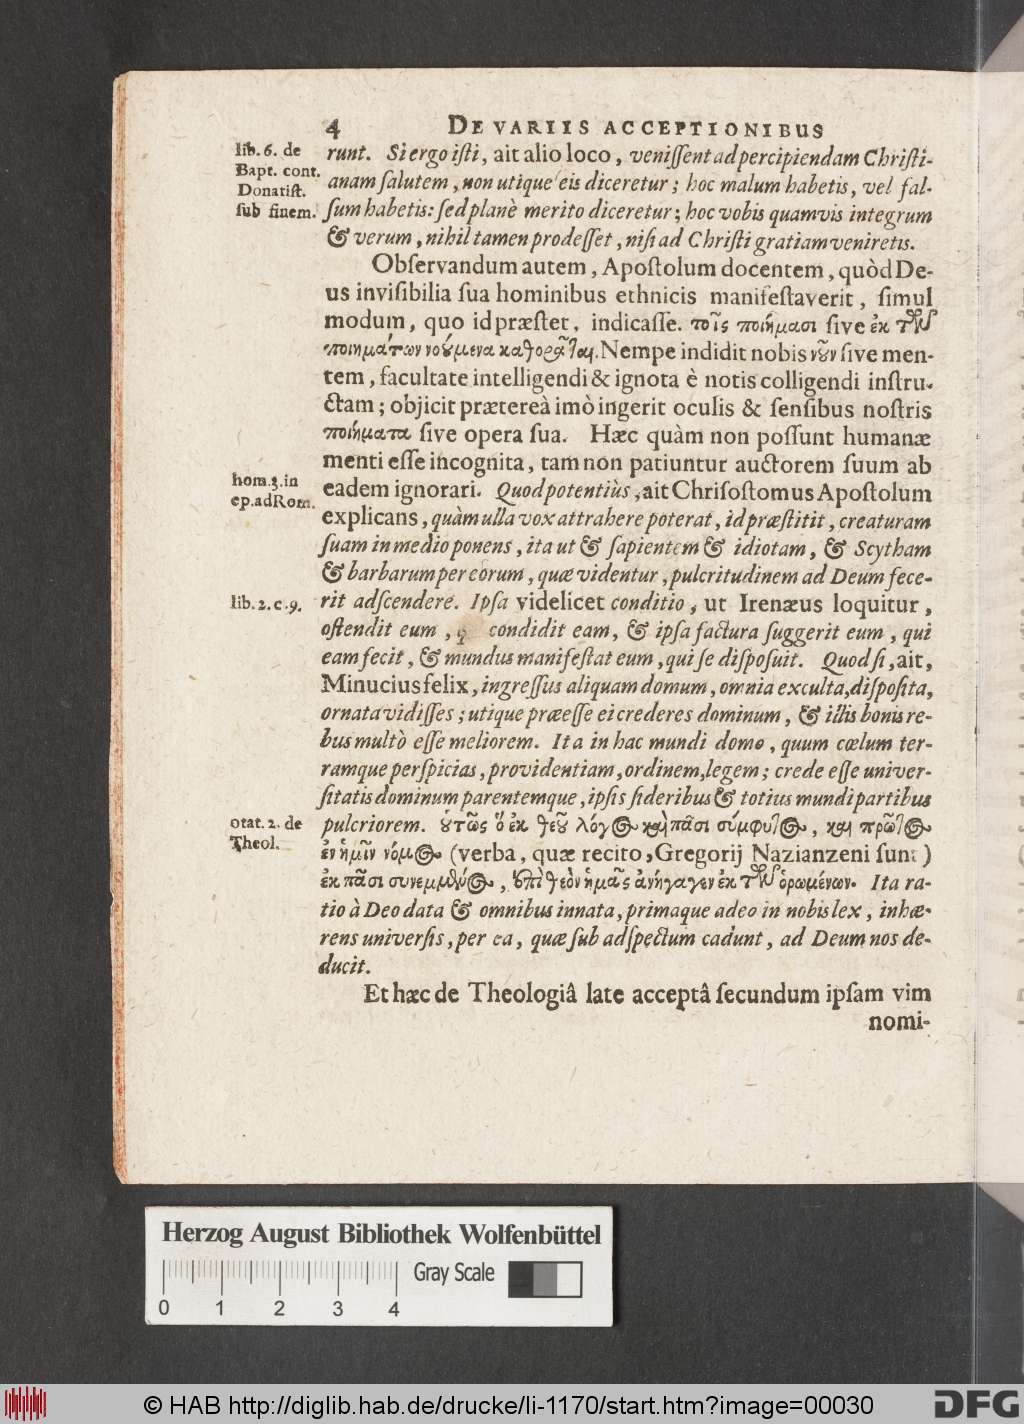 4 DE VARIIS ACCEPTIONIBUS
lib. 6. de
Bapt. cont.
Donatiſt.
ſub finem.
runt. Si ergo iſti, ait alio loco, veniſſent ad percipiendam Chriſti-
anam ſalutem, non utique eis diceretur; hoc malum habetis, vel fal-
ſum habetis: ſed planè merito diceretur; hoc vobis quamvis integrum
& verum, nihil tamen prodeſſet, niſi ad Chriſti gratiam veniretis.
Obſervandum autem, Apoſtolum docentem, quòd De-
us inviſibilia ſua hominibus ethnicis manifeſtaverit, ſimul
modum, quo id præſtet, indicaſſe. τοῖς ποιήμασι ſive ἐκ τῶν
ποιημάτων νούμενα καθορᾶται. Nempe indidit nobis νοῦν ſive men-
tem, facultate intelligendi & ignota è notis colligendi inſtru-
ctam; objicit prætereà imò ingerit oculis & ſenſibus noſtris
ποιήματα ſive opera ſua. Hæc quàm non poſſunt humanæ
menti eſſe incognita, tam non patiuntur auctorem ſuum ab
hom. 3. in
ep. ad Rom.
eadem ignorari. Quod potentiùs, ait Chriſoſtomus Apoſtolum
explicans, quàm ulla vox attrahere poterat, id præſtitit, creaturam
ſuam in medio ponens, ita ut & ſapientem & idiotam, & Scytham
& barbarum per eorum, quæ videntur, pulcritudinem ad Deum fece-
lib. 2. c. 9.
rit adſcendere. Ipſa videlicet conditio, ut Irenæus loquitur,
oſtendit eum, condidit eam, & ipſa factura ſuggerit eum, qui
eam fecit, & mundus manifeſtat eum, qui ſe diſpoſuit. Quod ſi, ait,
Minucius felix, ingreſſus aliquam domum, omnia exculta, diſpoſita,
ornata vidiſſes; utique præeſſe ei crederes dominum, & illis bonis re-
bus multò eſſe meliorem. Ita in hac mundi domo, quum cœlum ter-
ramque perſpicias, providentiam, ordinem, legem; crede eſſe univer-
ſitatis dominum parentemque, ipſis ſideribus & totius mundi partibus
orat. 2. de
Theol.
pulcriorem. οὑτῶς ὁ ἐκ θεοῦ λόγος καὶ πᾶσι σύμφυτος, καὶ πρῶτος
ἐν ἡμῖν νόμος (verba, quæ recito, Gregorij Nazianzeni ſunt)
ἐκ πᾶσι συνεμμένος, ἐπὶ θεὸν ἡμᾶς ἀνήγαγεν ἐκ τῶν ὁρωμένων. Ita ra-
tio à Deo data & omnibus innata, primaque adeo in nobis lex, inhæ-
rens univerſis, per ea, quæ ſub adſpectum cadunt, ad Deum nos de-
ducit.
Et hæc de Theologiâ late acceptâ ſecundum ipſam vim
nomi-
Herzog August Bibliothek Wolfenbüttel
Gray Scale
0 1 2 3 4
© HAB http://diglib.hab.de/drucke/li-1170/start.htm?image=00030
DFG